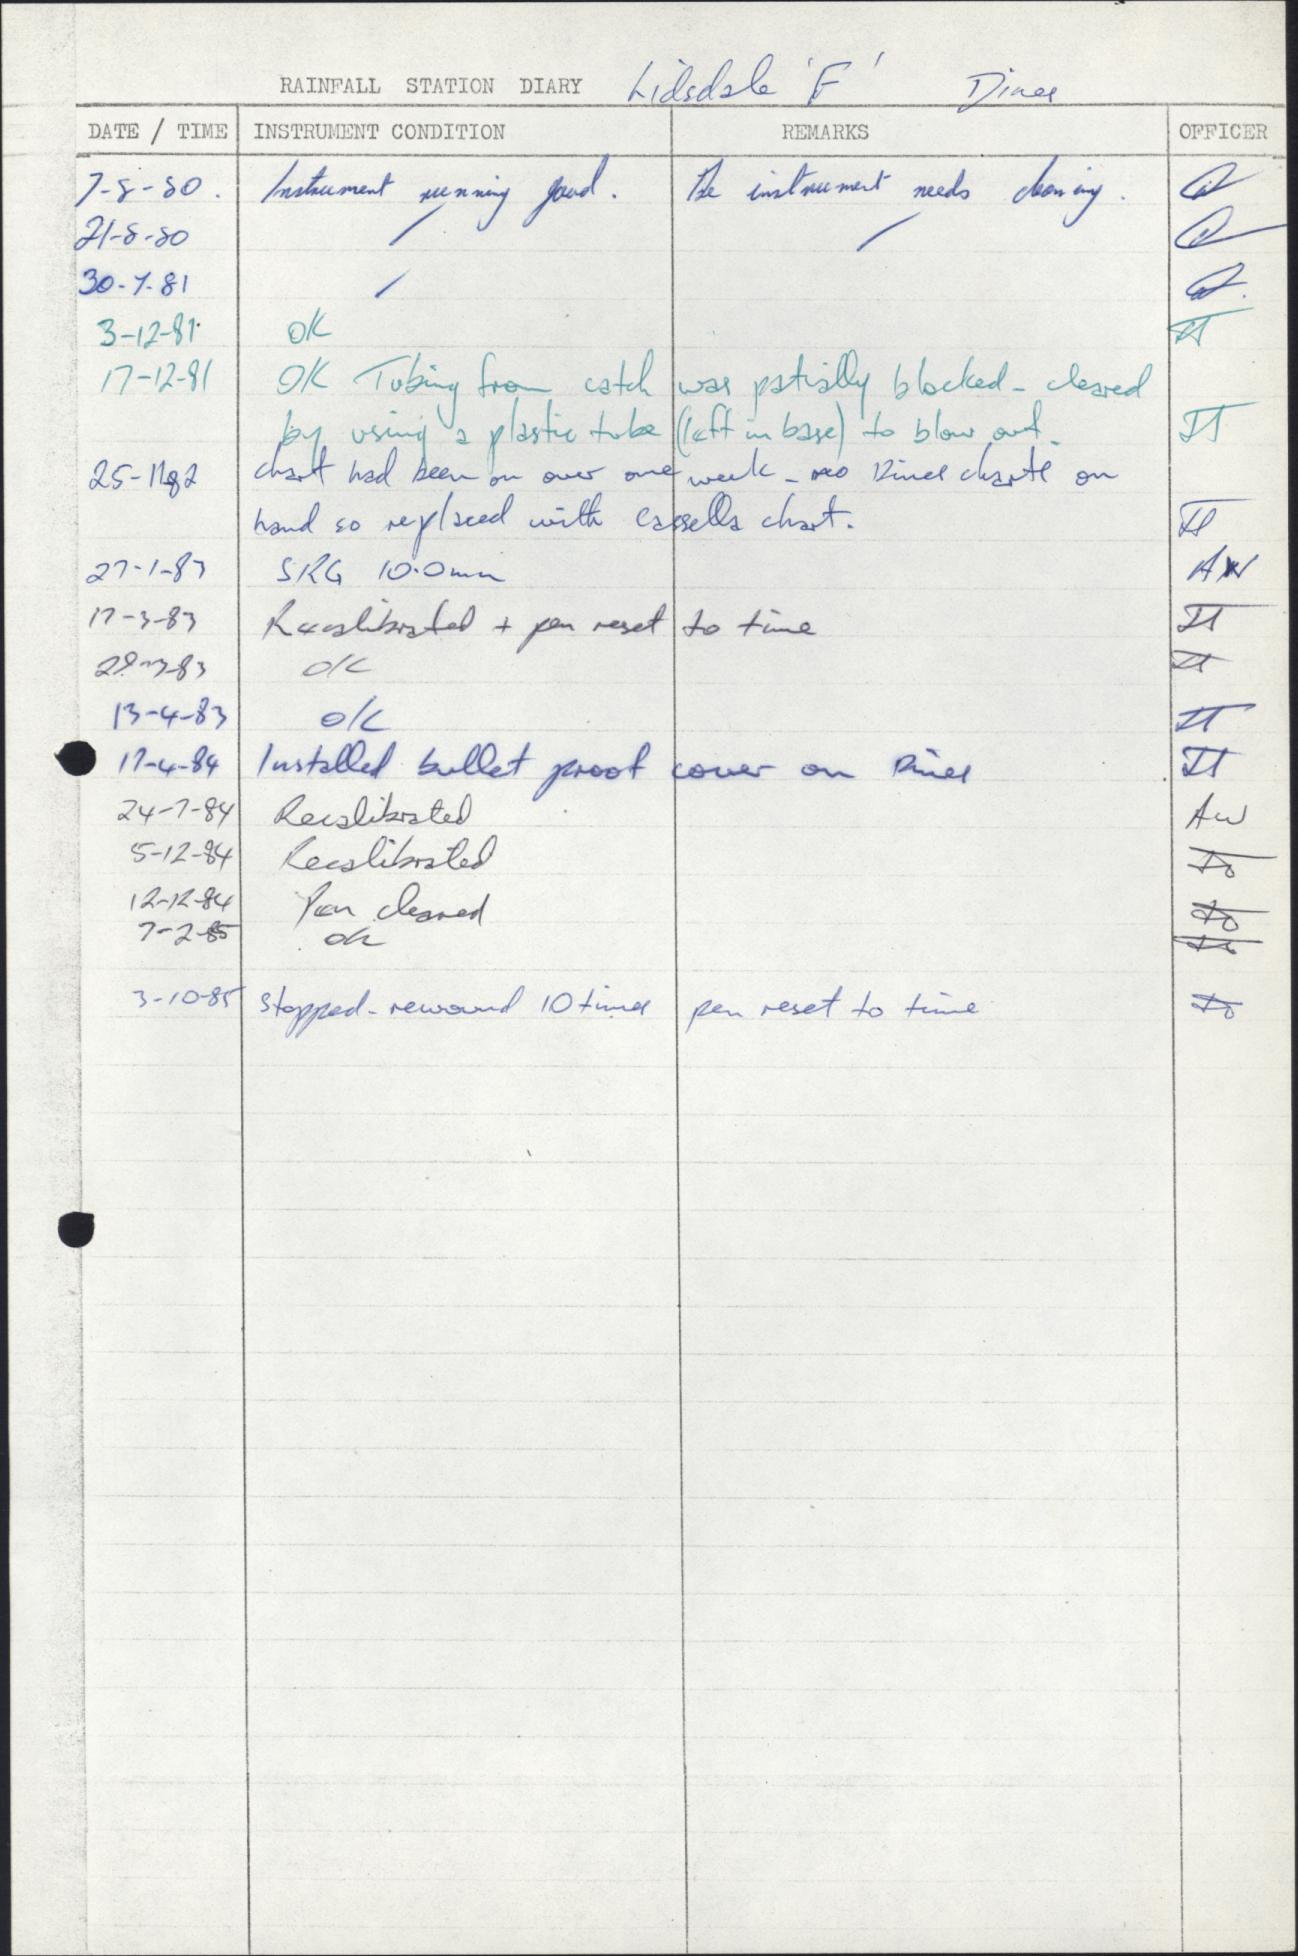 RAINFALL STATION DIARY Lidsdale 'F' Dines
DATE / TIME INSTRUMENT CONDITION REMARKS OFFICER
7-8-80. Instrument running good. The instrument needs cleaning.
21-8-80 / /
30-7-81 /
3-12-81 OK IT
17-12-81 OK Tubing from catch was patially blocked - cleared
by using a plastic tube (left in base) to blow out. IT
25-11-82 chart had been on over one week - no Dines charts on
hand so replaced with Cassella chart. IT
27-1-83 SRG 10.0mm AW
17-3-83 Recalibrated + pen reset to time IT
28-3-83 OK IT
13-4-83 OK IT
17-4-84 Installed bullet proof cover on Dines IT
24-7-84 Recalibrated AW
5-12-84 Recalibrated
12-12-84 Pen cleaned
7-2-85 OK
3-10-85 stopped - rewound 10 times pen reset to time